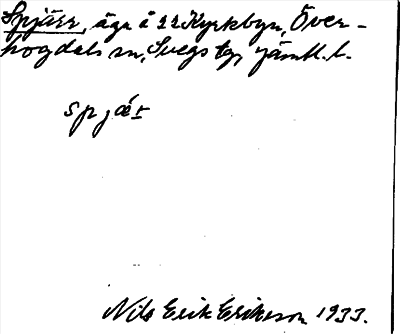 Spjärr, äga å 22 Kyrkbyn, Över-
hogdals sn, Svegs tg, Jämtl. l.
spjær
Nils Erik Eriksson 1933.